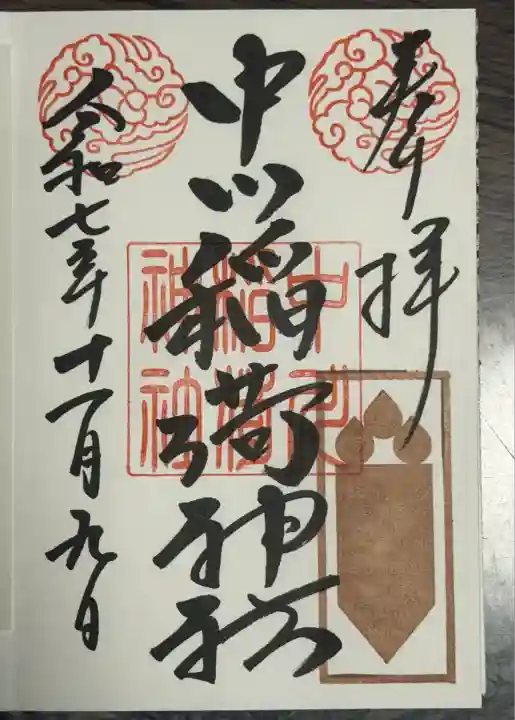 奉拝
中川稲荷神社
中川
稲荷
神社
令和七年十一月九日